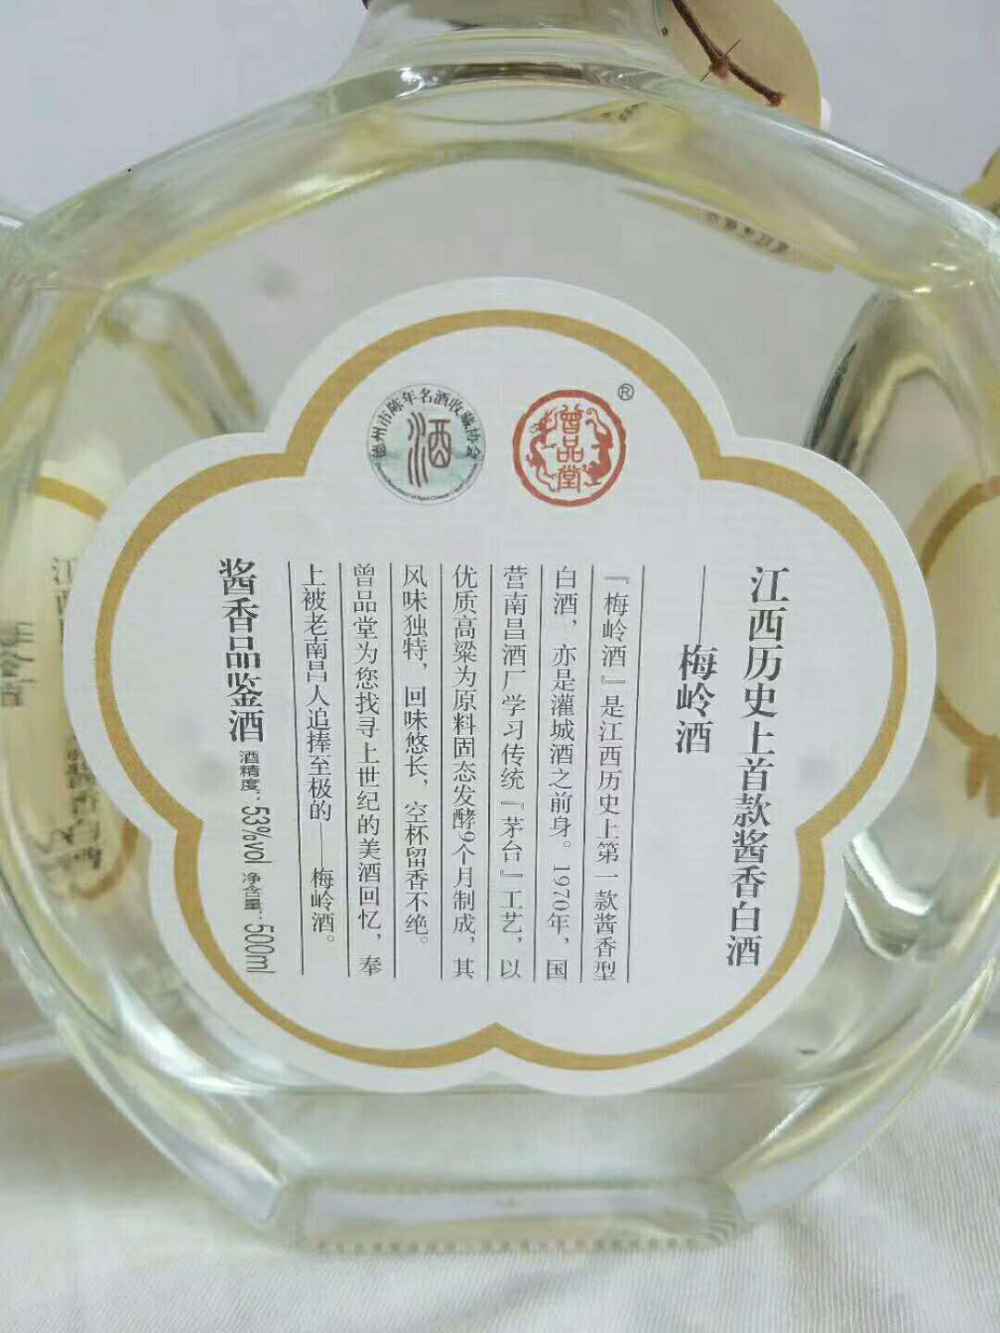 德州市陈年名酒收藏协会
酒
曾品堂
®
江西历史上首款酱香白酒
——梅岭酒
『梅岭酒』是江西历史上第一款酱香型
白酒，亦是灌城酒之前身。1970年，国
营南昌酒厂学习传统『茅台』工艺，以
优质高粱为原料固态发酵9个月制成，其
风味独特，回味悠长，空杯留香不绝。
曾品堂为您找寻上世纪的美酒回忆，奉
上被老南昌人追捧至极的——梅岭酒。
酱香品鉴酒 酒精度：53%vol 净含量：500ml